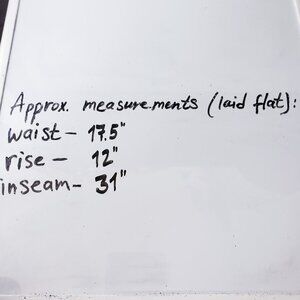 Approx. measurements (laid flat):
waist - 17.5"
rise - 12"
inseam - 31"